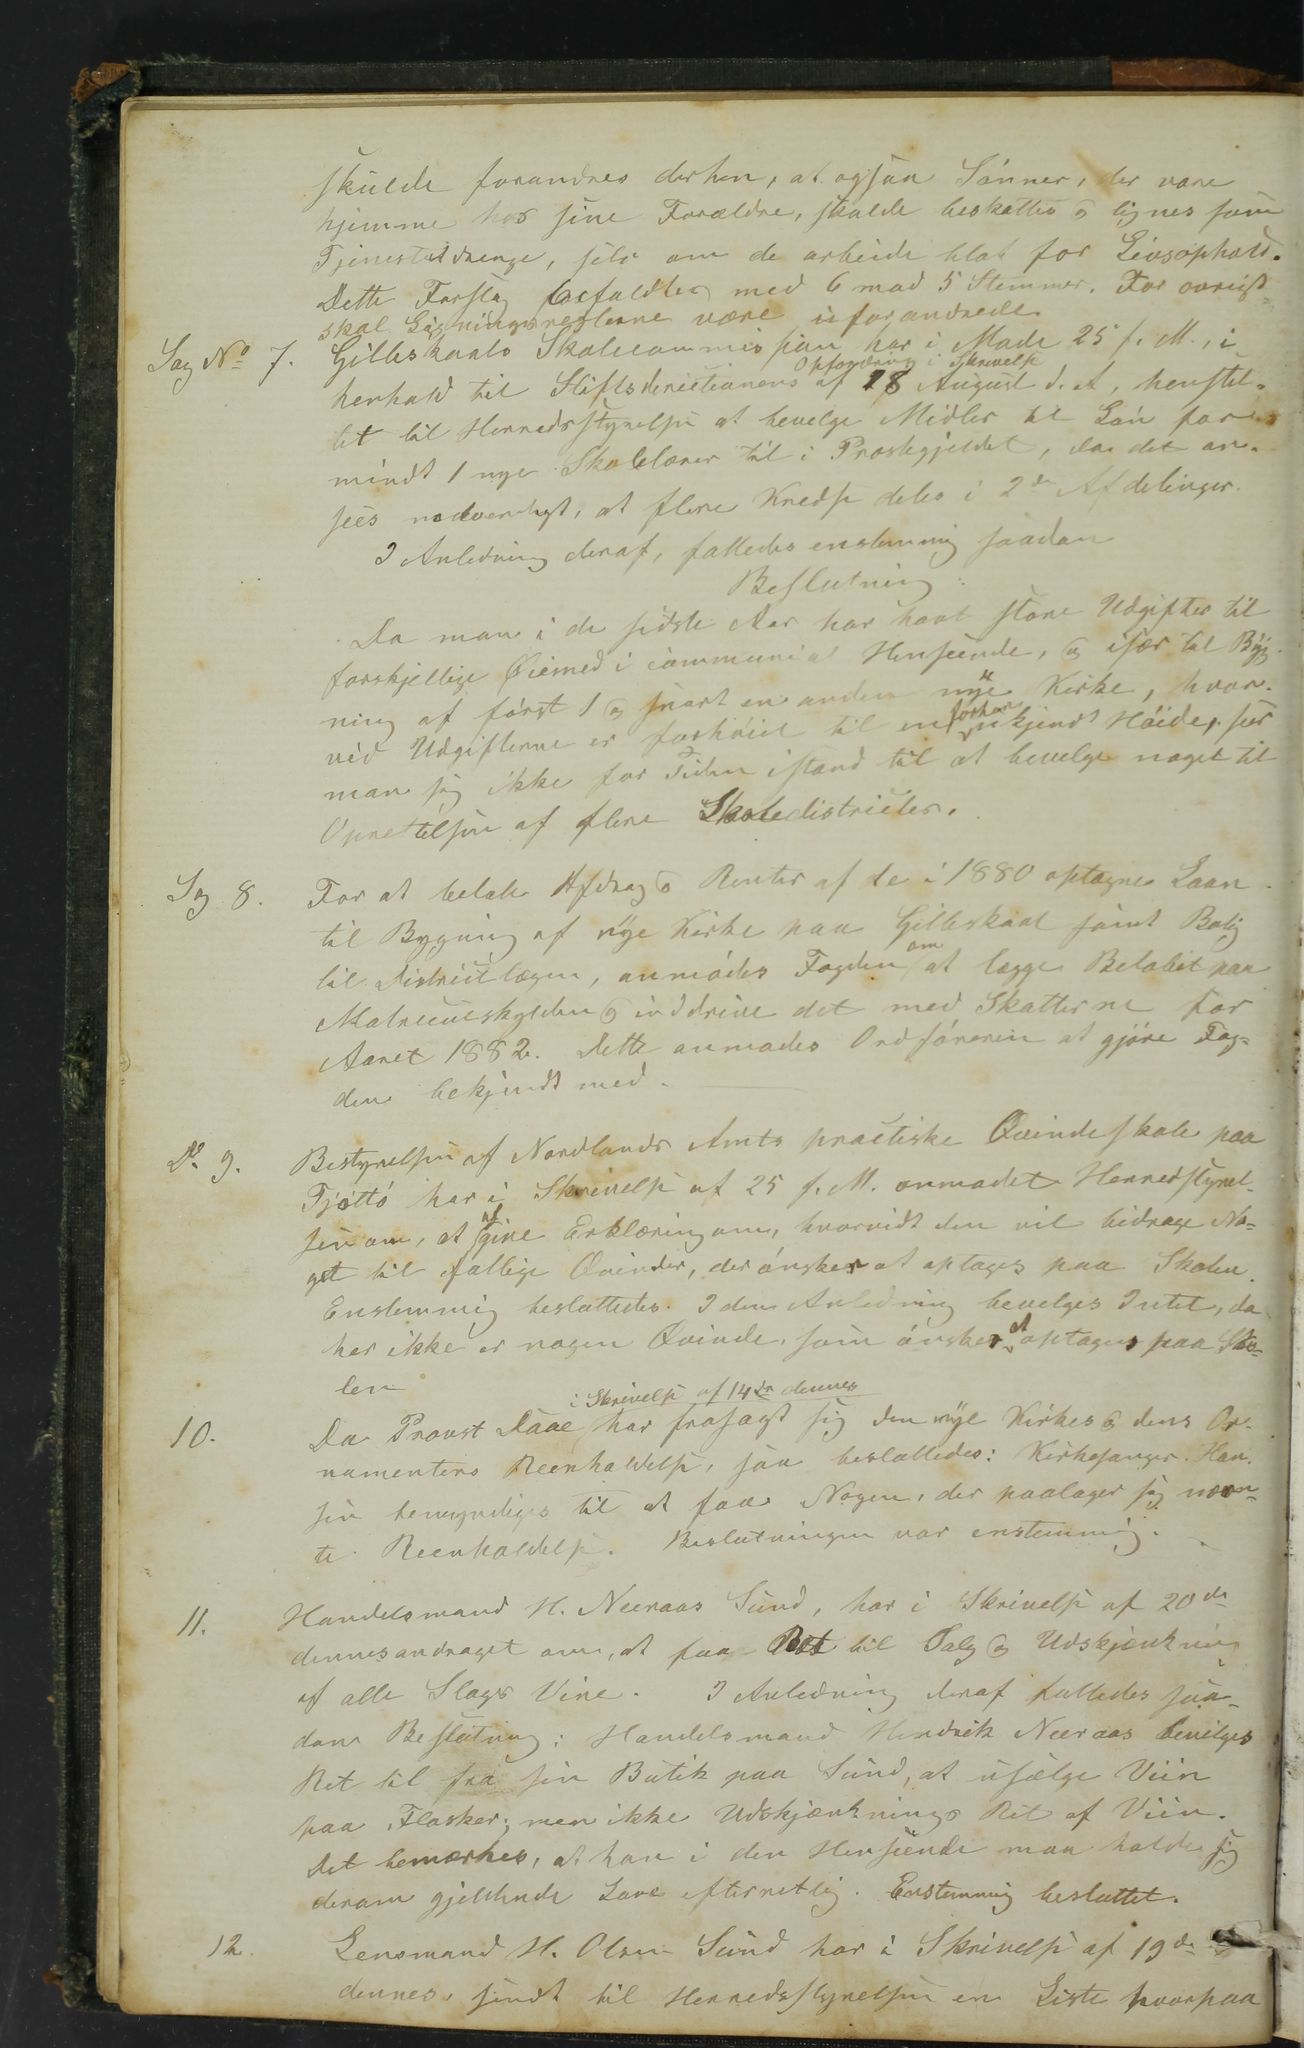 skulde forandres derhen, at ogsaa Sønner, der vare
hjemme hos sine Forældre, skulde beskattes og lignes som
Tjenestedrenge, selv om de arbeide blot for Livsophold.
Dette Forslag befaldtes med 6 mod 5 Stemmer. For øvrigt
skal Ligningsreglerne være uforandrede.
Sag No 7. Gilleskaals Skolecommission har i Møde 25 f. M., i
henhold til Stiftsdirectionens Opfordring i Skrivelse af 18 August d. A, henstil-
let til Herredsstyrelsen at bevilge Midler til Løn for
mindst 1 nye Skolelærer til i Præstegjeldet, da det an-
sees nødvendigt, at flere Kredse deles i 2de Afdelinger.
I Anledning deraf, fattedes enstemmig saadan
Beslutning:
Da man i de sidste Aar har havt store Udgifter til
forskjellige Øiemed i communial Henseende, og især til Byg-
ning af først 1 og snart en anden nye Kirke, hvor-
ved Udgifterne er forhøiet til en forhen ukjendt Høide, ser
man sig ikke for Tiden istand til at bevilge noget til
Oprettelsen af flere Skoledistricter.
Sag 8. For at betale Afdrag og Renter af de i 1880 optagne Laan
til Bygning af nye Kirke paa Gilleskaal samt Bolig
til Districtlægen, anmodes Fogden om at lægge Beløbet paa
Matriculskylden og inddrive det med Skatterne for
Aaret 1882. Dette anmodes Ordføreren at gjøre Fog-
den bekjendt med.
Do 9. Bestyrelsen af Nordlands Amts practiske Qvindeskole paa
Tjøttø har i Skrivelse af 25 f. M. anmodet Herredsstyrel-
sen om, at afgive Erklæring om, hvorvidt den vil bidrage No-
get til fattige Qvinder, der ønsker at optages paa Skolen.
Enstemmig besluttedes: I den Anledning bevilges Intet, da
her ikke er nogen Qvinde, som ønsker at optages paa Sko-
len
10. Da Provst Daae i Skrivelse af 14de dennes har frasagt sig den nye Kirkes og dens Or-
namenters Reenholdelse, saa besluttedes: Kirkesanger Han-
sen bemyndiges til at faae Nogen, der paatager sig nævn-
te Reenholdelse. Beslutningen var enstemmig.
11. Handelsmand H. Neeraas Sund, har i Skrivelse af 20de
dennes andraget om, at faa Ret til Salg og Udskjænkning
af alle Slags Vine. I Anledning deraf fattedes saa-
dan Beslutning: Handelsmand Hendrik Neeraas bevilges
Ret til fra sin Butik paa Sund, at usælge Viin
paa Flasker; men ikke Udskjænknings Ret af Viin.
Det bemærkes, at han i den Henseende maa holde sig
derom gjeldende Love efterretlig. Enstemmig besluttet.
12. Lensmand H. Olsen Sund har i Skrivelse af 19de
dennes, sendt til Herredsstyrelsen en Liste hvorpaa